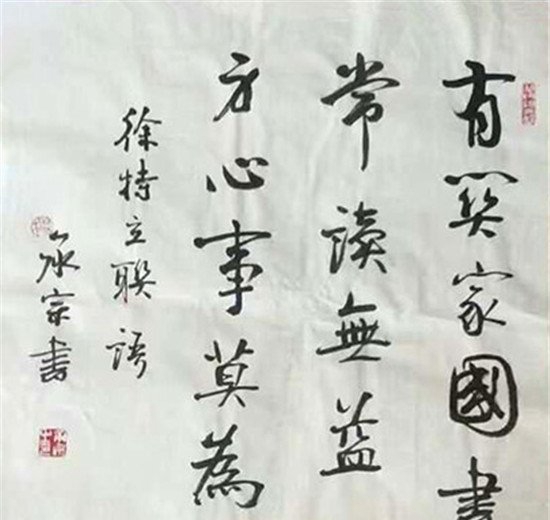 有関家國書
常讀無益
身心事莫為
徐特立聯語
永宗書